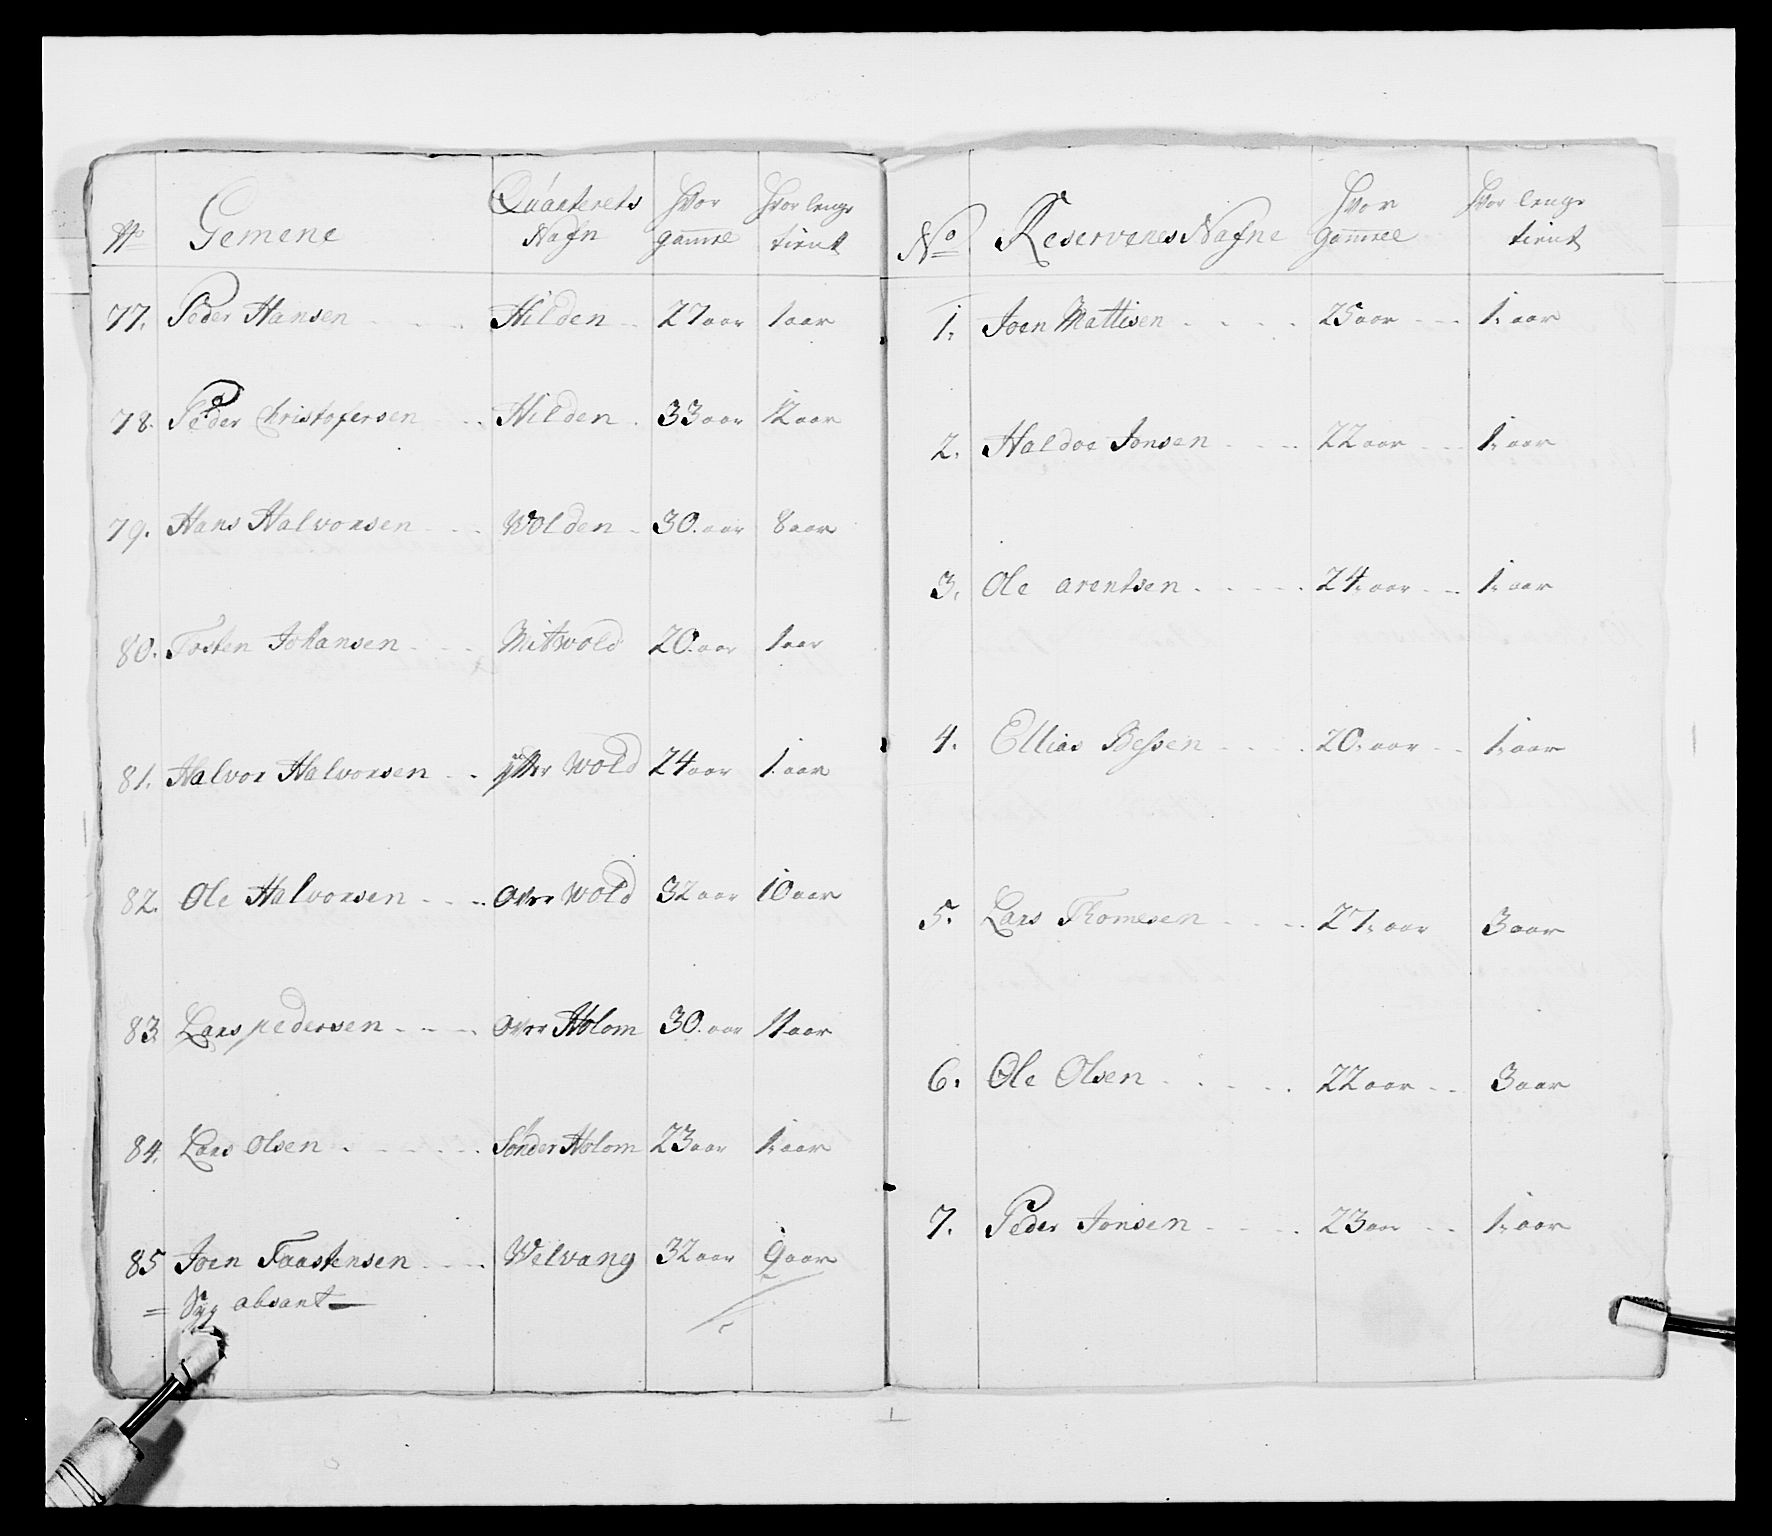 No Gemene Quarterets Nafn Hvor gammel Hvor lenge tient
77. Peder Hansen Hilden 27 aar 1 aar
78. Peder Christofersen Hilden 33 aar 12 aar
79. Hans Halvorsen Wolden 30. aar 8 aar
80. Tosten Johansen Mitwold 20. aar 1 aar
81. Halvor Halvorsen ytter Wold 24 aar 1 aar
82. Ole Halvorsen Over Wold 32 aar 10 aar
83 Lars pedersen Over Holom 30. aar 11 aar
84. Lars Olsen Sønder Holom 23 aar 1. aar
85 Joen Faastensen Welvang 32 aar 9 aar
= Syg absant
No Reservenes Nafne Hvor gammel Hvor lenge tient
1. Joen Mattisen 25 aar 1. aar
2. Haldoe Jonsen 22 aar 1. aar
3. Ole arentsen 24. aar 1. aar
4. Ellias Bessen 20. aar 1. aar
5. Lars Thomesen 27. aar 3 aar
6. Ole Olsen 22 aar 3 aar
7. Peder Jonsen 23 aar 1. aar